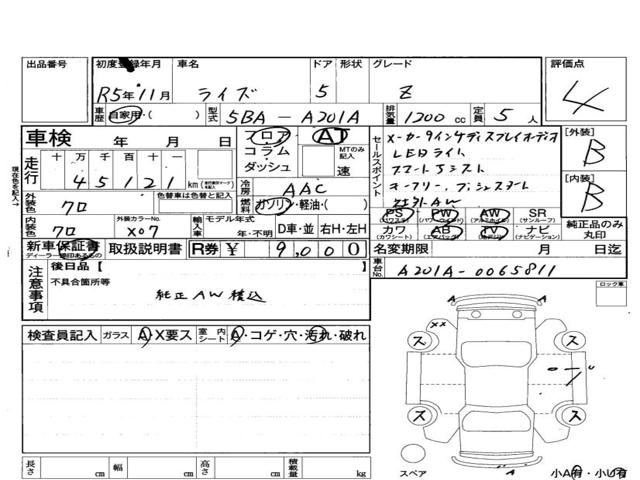 出品番号
初度登録年月
車名
ドア
形状
グレード
評価点
R5年11月
ライズ
5
Z
4
車歴
自家用・( )
型式
5BA-A201A
排気量
1200 cc
定員
5人
車検
年 月 日
フロア
AT
コラム
ダッシュ
MTのみ記入
速
走行
十 万 千 百 十 一
45121
km
現在色を記入
外装色
クロ
色替車は色替と記入
冷房
AAC
燃料
ガソリン・軽油・( )
内装色
クロ
外装カラーNo.
X07
輸入車
モデル年式
年・不明
D車・並
右H・左H
セールスポイント
メーカー9インチディスプレイオーディオ
LEDライト
スマートアシスト
オートフリー、プッシュスタート
社外AW
[外装]
B
[内装]
B
PS
(パワステ)
PW
(パワーウインドウ)
AW
(アルミホイール)
SR
(サンルーフ)
カワ
(カワシート)
AB
(エアバッグ)
TV
ナビ
(ナビゲーション)
純正品のみ
丸印
新車保証書
ディーラー捺印あるもの
取扱説明書
R券
¥
9,000
名変期限
月
日迄
車台No.
A201A-0065811
注意事項
後日品【
】
不具合箇所等
純正AW積込
ロック車
検査員記入
ガラス
A・X要ス
室内
シート
A・コゲ・穴・汚れ・破れ
A
××
ス
ス
ス
ス
A
スペア
小A有・小U有
長さ
cm
幅
cm
高さ
cm
積載量
kg